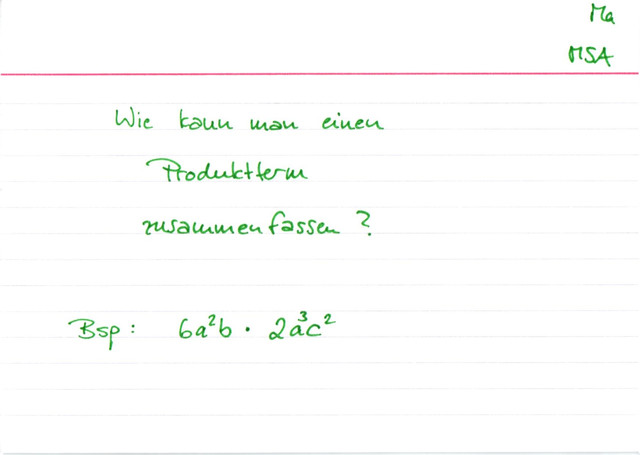 Ma
MSA
Wie kann man einen
Produktterm
zusammenfassen?
Bsp: 6a²b · 2a³c²